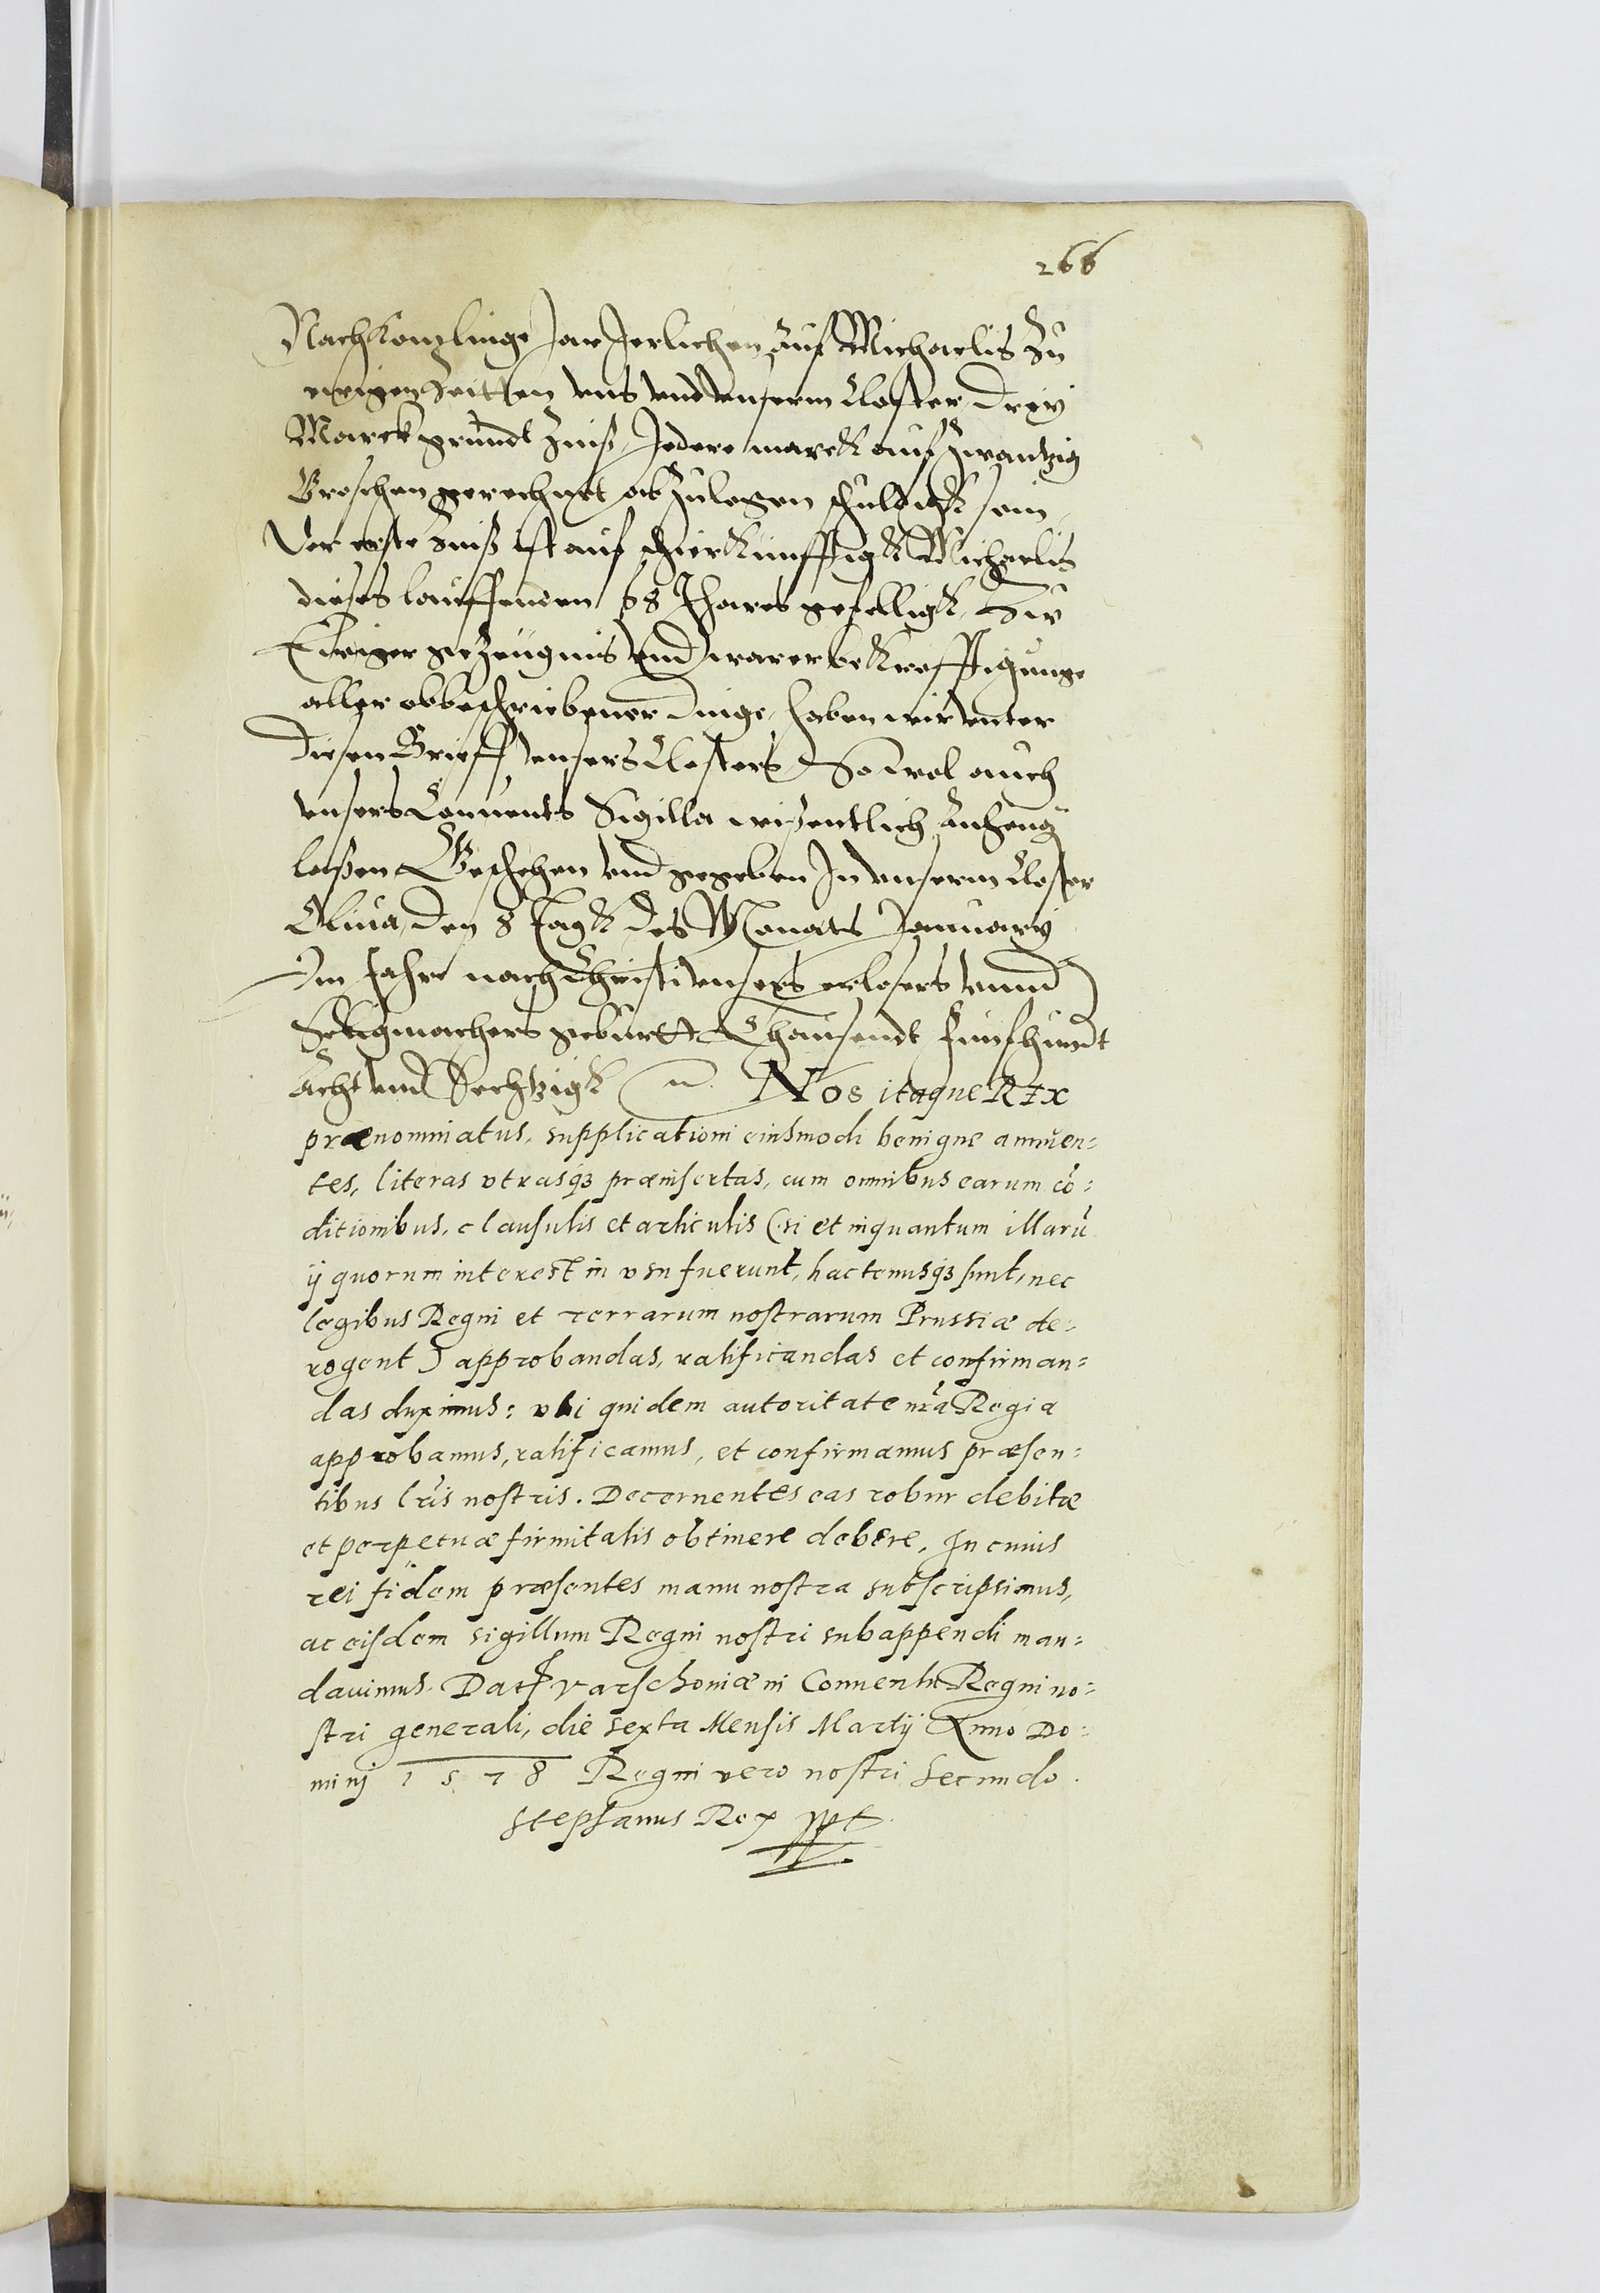 266
Nachkomlinge Jar Jerlichen Auf Michaelis Zu
ewigen Zeitten vns vnd vnserm Closter Drey
Marck grundt Zinß, Jedere marck auf Zwantzig
Groschen gerechnet abZulegen schuldigk sein,
Der erste Zinß ist auf schierkunfftigk Michaelis
dieses lauffenden 68 Jhares gefelligk, Zw
Ewiger geZeugnis vnd warer bekrefftigunge
aller obbeschriebener Dinge, haben wir vnter
diesen Brieff vnsers Closters So wol auch
vnsers Conuents Sigilla wißentlich Anheng
laßen Geschehen vnd gegeben In vnserm Closter
Oliua, den 8 Tagk des Monats January
Im Jahre nach Christi vnsers erlosers vnnd
Seligmachers geburtt Thausendt funfhundt
Acht vnd Sechtzigk Nos itaque Rex
prænominatus, supplicationi eiusmodi benigne annuen=
tes, literas vtrasq3 præinsertas, cum omnibus earum cō=
ditionibus, clausulis et articulis (si et inquantum illarū
ij quorum interest in vsu fuerunt, hactenusq3 sunt, nec
legibus Regni et terrarum nostrarum Prussiæ de=
rogent) approbandas, ratificandas et confirman=
das duximus: vti quidem autoritate nr̃a Regia
approbamus, ratificamus, et confirmamus præsen=
tibus lr̃is nostris. Decernentes eas robur debitæ
et perpetuæ firmitatis obtinere debere, In cuius
rei fidem præsentes manu nostra subscripsimus,
ac eisdem sigillum Regni nostri subappendi man=
dauimus. Dat Varschouiæ in Conuentu Regni no=
stri generali, die sexta Mensis Martij Anno Do=
minj 1578 Regni vero nostri Secundo.
Stephanus Rex